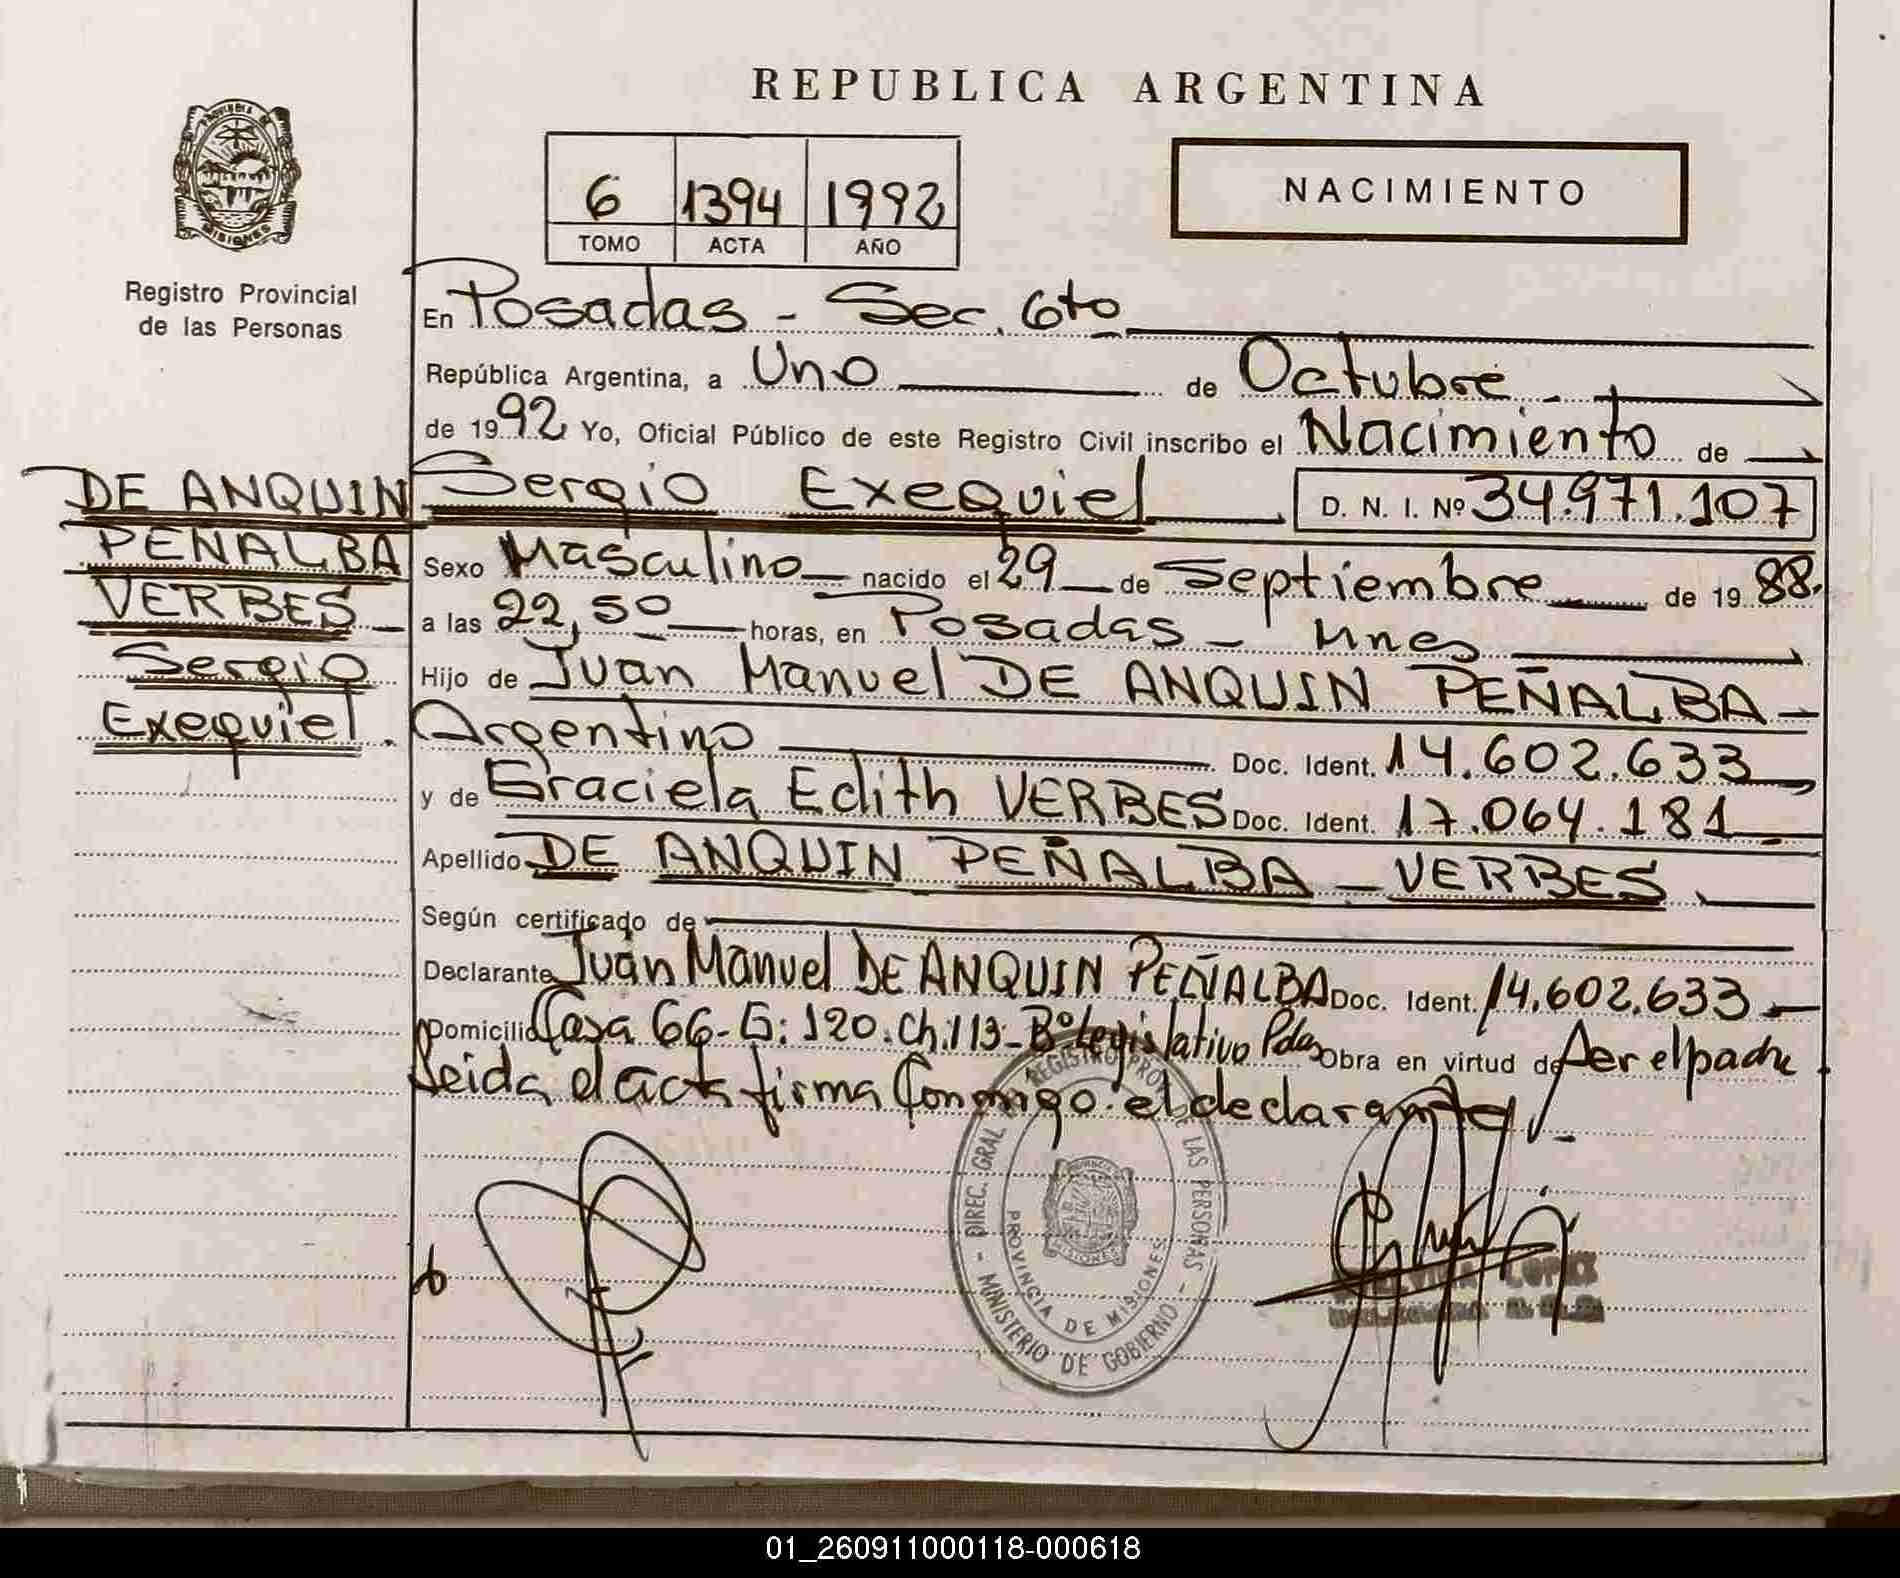 REPUBLICA ARGENTINA
PROVINCIA DE
MISIONES
Registro Provincial
de las Personas
6 1394 1992
TOMO ACTA AÑO
NACIMIENTO
En Posadas - Sec. 6to
República Argentina, a Uno de Octubre
de 1992 Yo, Oficial Público de este Registro Civil inscribo el Nacimiento de
Sergio Exequiel D. N. I. Nº 34.971.107
Sexo Masculino nacido el 29 de Septiembre de 1988.
a las 22,50 horas, en Posadas - Mnes
Hijo de Juan Manuel DE ANQUIN PEÑALBA -
Argentino Doc. Ident. 14.602.633
y de Graciela Edith VERBES Doc. Ident. 17.064.181
Apellido DE ANQUIN PEÑALBA - VERBES.
Según certificado de
Declarante Juan Manuel DE ANQUIN PEÑALBA Doc. Ident. 14.602.633 -
Domicilio Casa 66-E: 120. Ch. 113 - Bº Legislativo Pdas Obra en virtud de ser el padre
Leida el acta firma Conmigo el declarante
DE ANQUIN
PEÑALBA
VERBES
Sergio
Exequiel.
DIREC. GRAL REGISTRO PROV. DE LAS PERSONAS - MINISTERIO DE GOBIERNO -
PROVINCIA DE MISIONES
LOPEZ
01_260911000118-000618